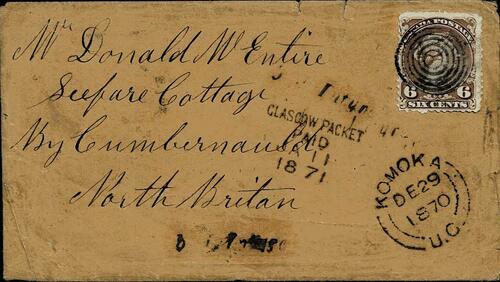 Mr Donald McEntire
Seefare Cottage
By Cumbernauld
North Britan
CANADA POSTAGE
6 6
SIX CENTS
GLASGOW PACKET
PAID
JA 11
1871
KOMOKA
DE 29
1870
U.C.